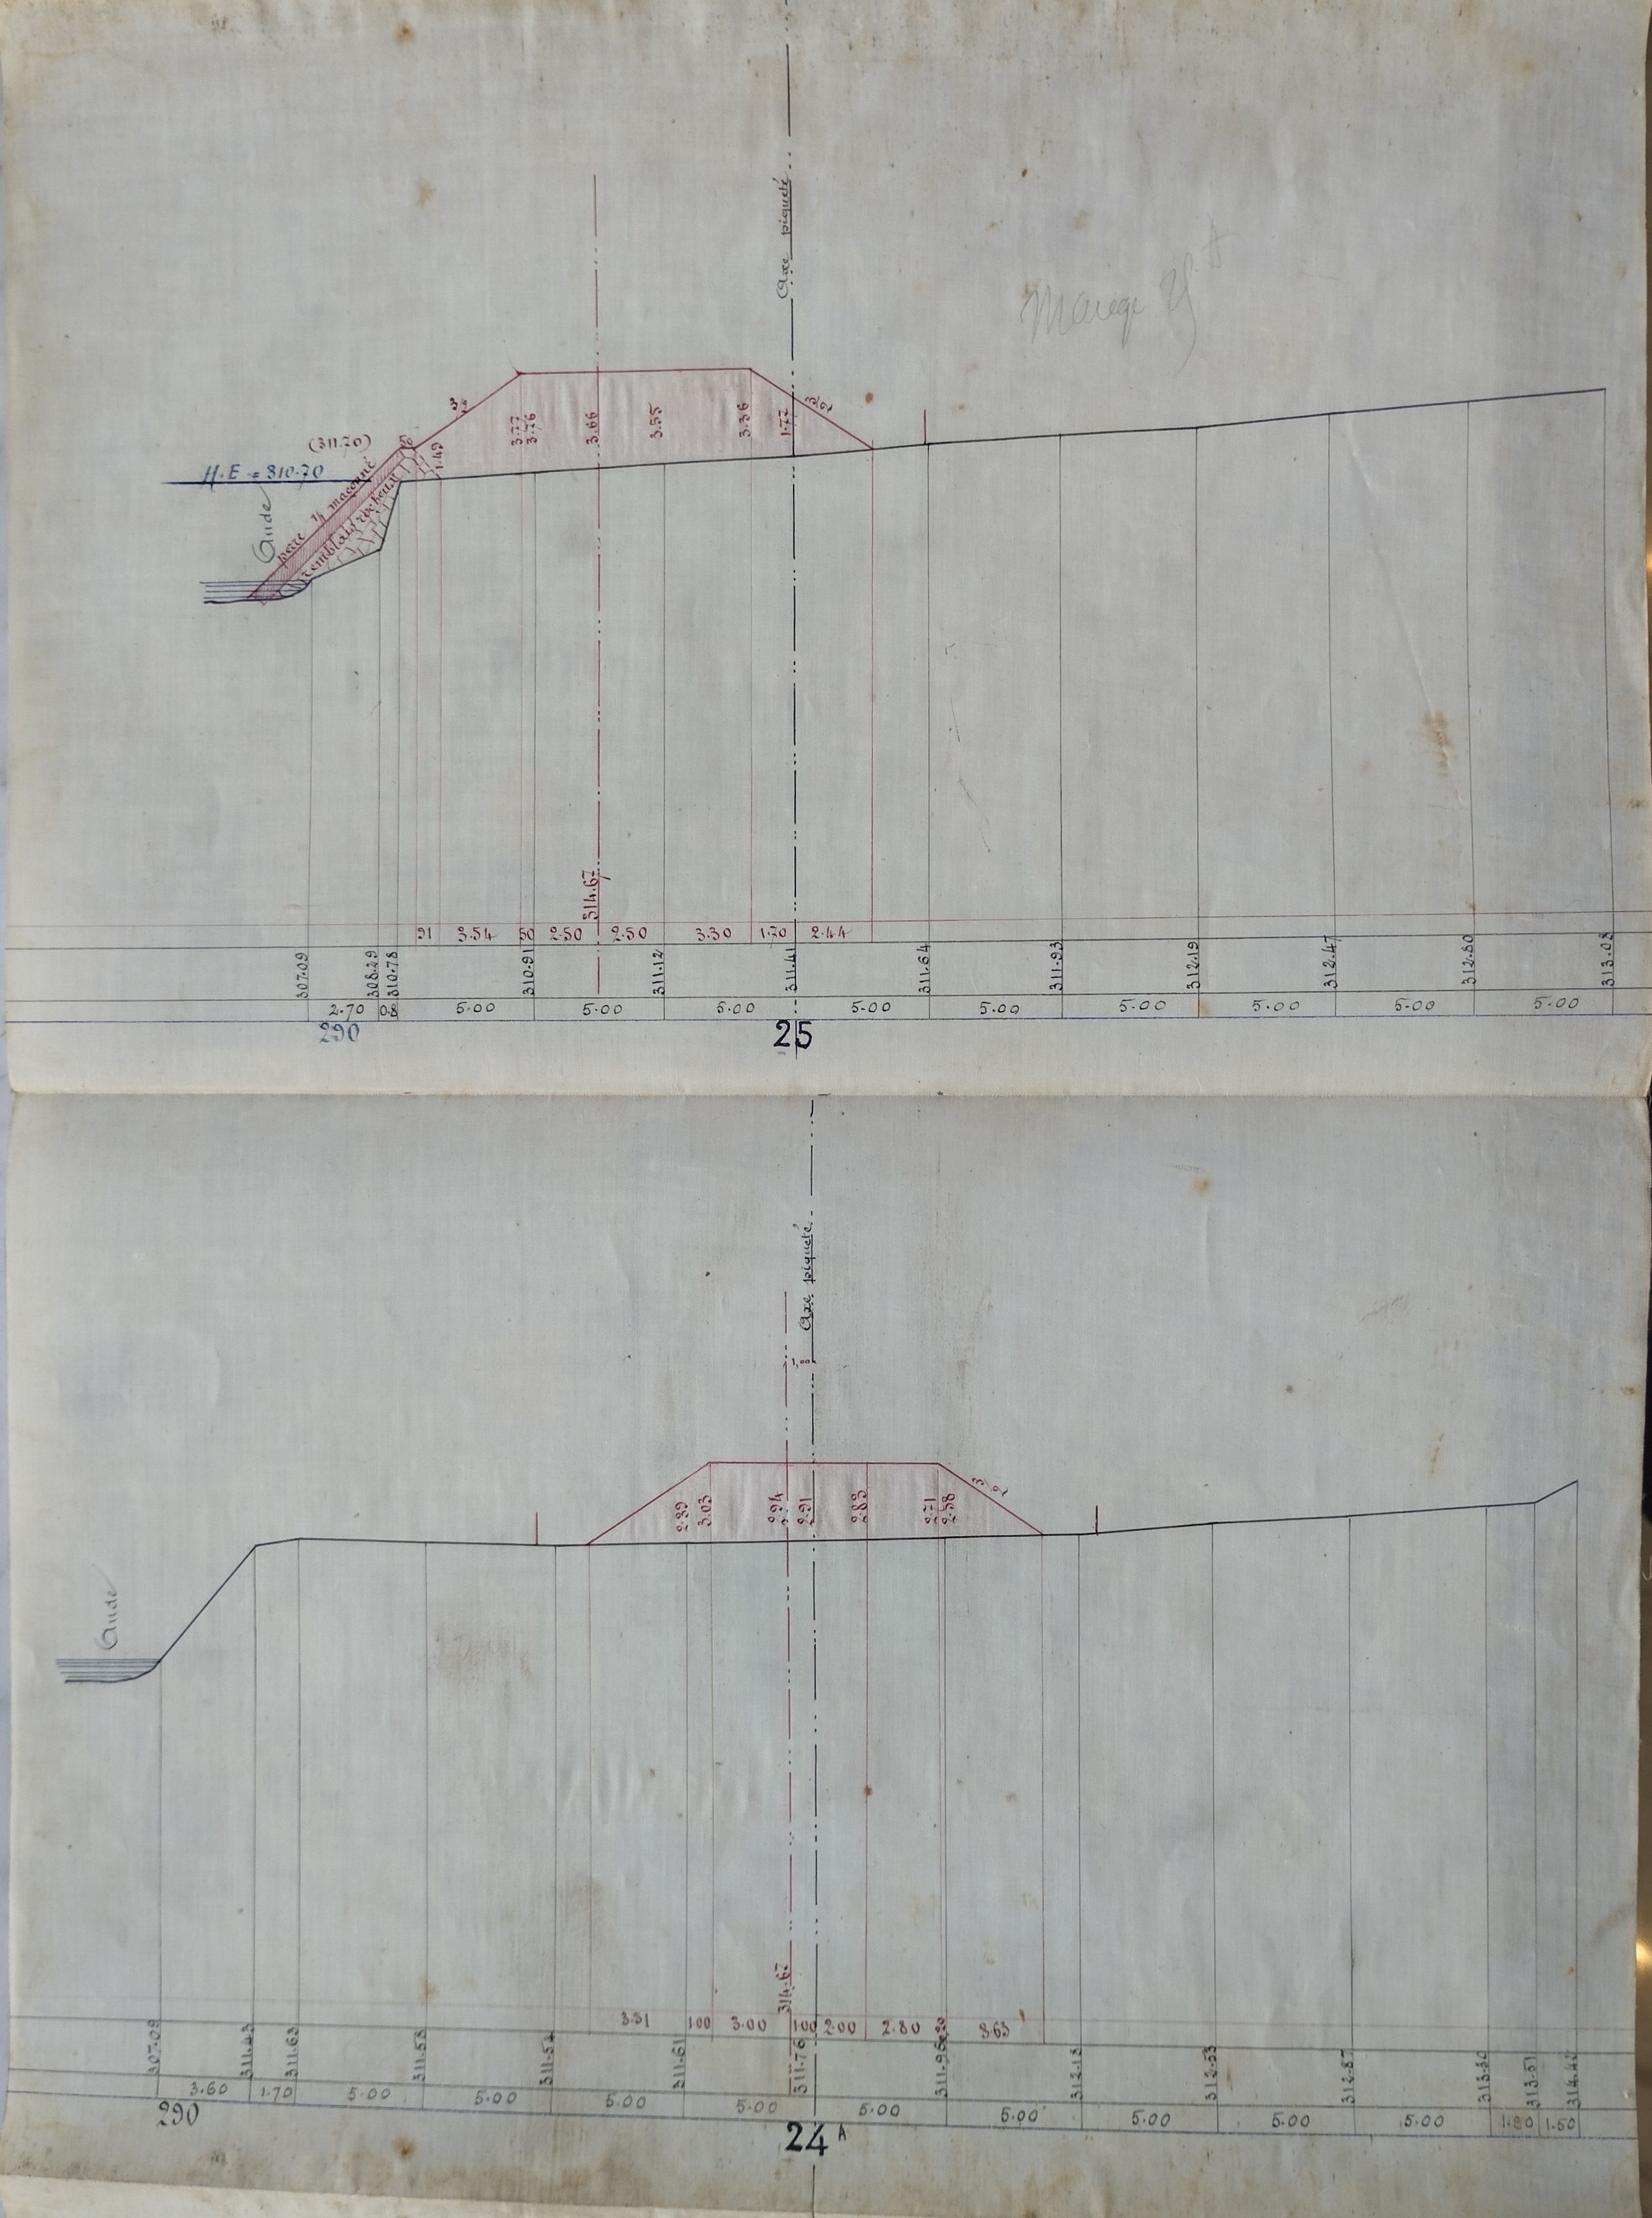 Axe piqueté
(311.70)
H.E = 310.70
Aude
perré ½ maçonné
remblais rocheux
3/2
1.49
3.77
3.76
3.66
3.55
3.36
1.77
3/2
314.67
91 3.54 50 2.50 2.50 3.30 1.70 2.44
307.09 308.29 310.78 310.91 311.12 311.41 311.64 311.93 312.19 312.47 312.80 313.08
2.70 0.8 5.00 5.00 5.00 5.00 5.00 5.00 5.00 5.00 5.00
290
25
Axe piqueté
Aude
3.03
2.94
2.91
2.83
2.71
2.58
3/2
314.67
1.00 3.00 1.00 2.00 2.80 3.63
307.09 311.43 311.63 311.58 311.51 311.61 311.76 311.96 312.13 312.53 312.87 313.30 313.51 314.42
3.60 1.70 5.00 5.00 5.00 5.00 5.00 5.00 5.00 5.00 5.00 1.80 1.60
290
24 A